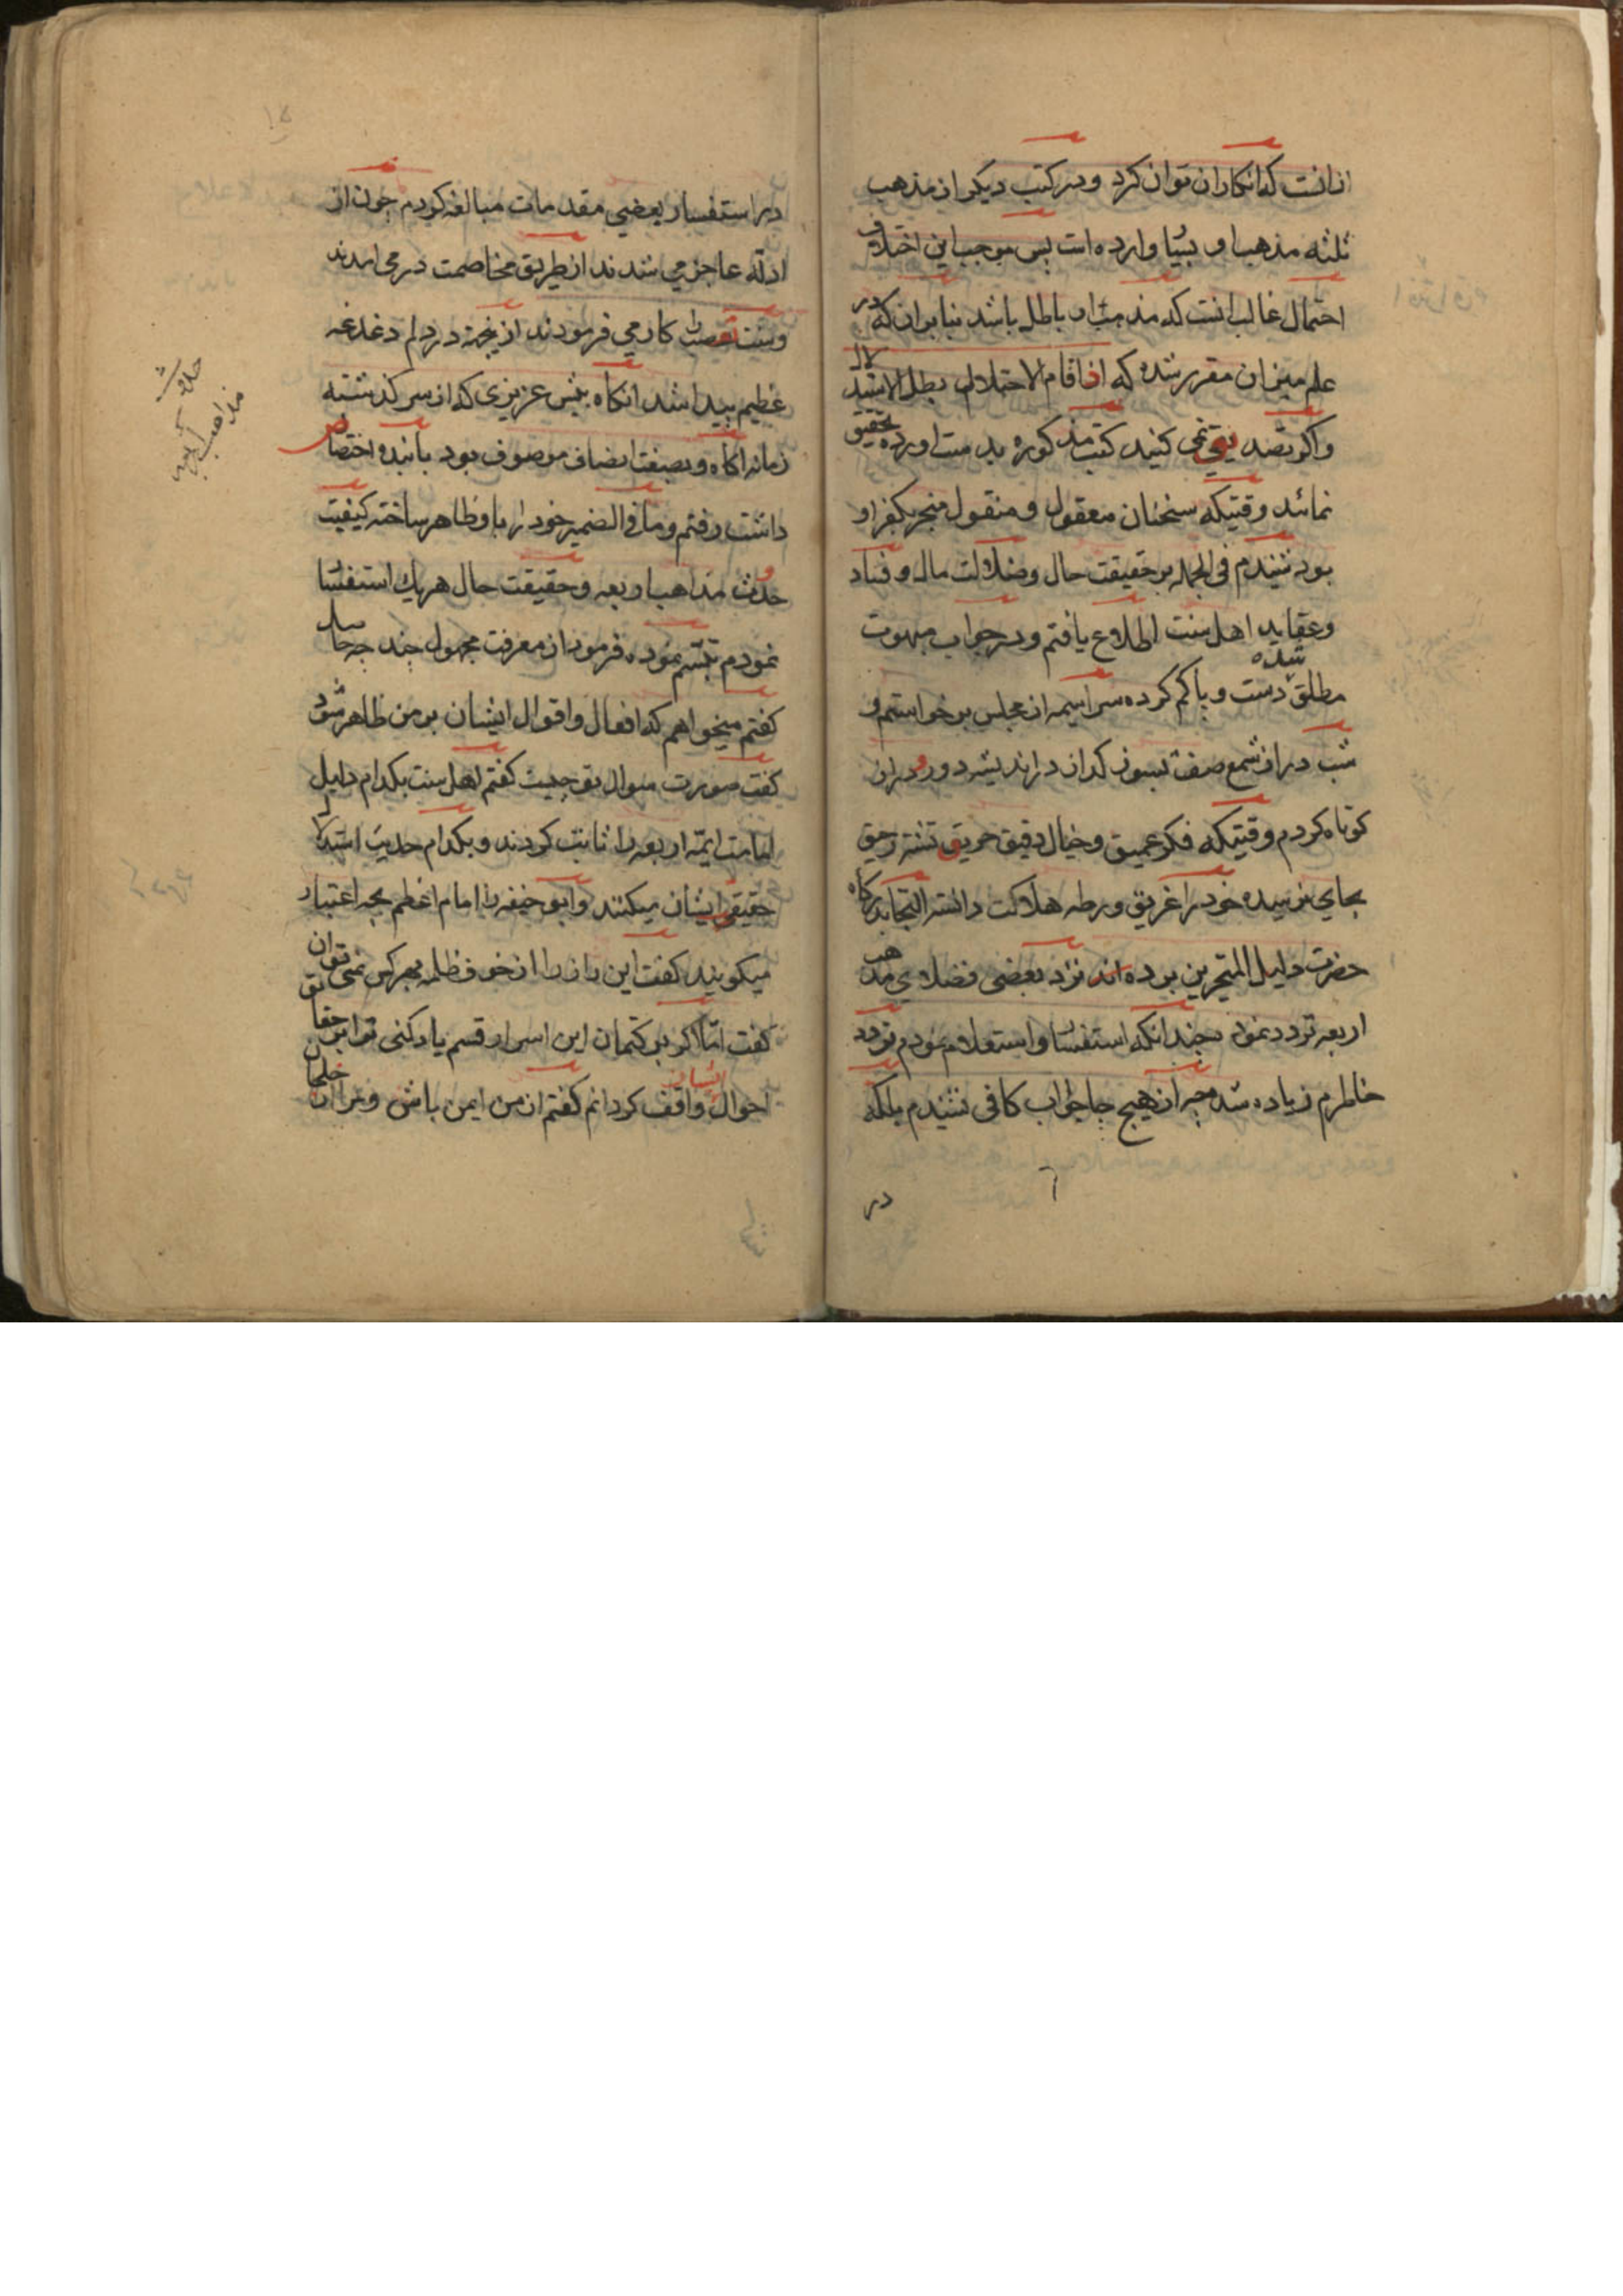 ازانست که انکار ان توان کرد و در کتب دیکر از مذهب
ثلثه مذهب او بسیار وارده است پس بموجب این اختلاف
احتمال غالب انست که مذهب او باطل باشد بنابران که در
علم میزان مقرر شده که اذا قام الاحتلال بطل الاستدلال
واکر تصدیق نمی کنید کتب مذکوره بدست اورده تحقیق
نمائد وقتیکه سخنان معقول و منقول منجر بکفر او
بود شنیدم فی الجمله بر حقیقت حال وضلالت مال و فساد
وعقاید اهل سنت اطلاع یافتم و در جواب مبهوت
مطلق شده دست و پا کم کرده سراسیمه از مجلس برخواستم و
شب دراز شمع صفت بسوز کداز در اندیشه دور و دراز
کوتاه کردم وقتیکه فکر عمیق و خیال دقیق حریق تشنه رحیق
بجای نرسیده خود را غریق ورطه هلاکت دانسته التجا بدرکاه
حضرت دلیل المتحیرین برده اند نزد بعضی فضلای مذهب
اربعه تردد نمود چندانکه استفسار و استعلام نمودم تردد
خاطرم زیاده شد از هیچ جا جواب کافی نشنیدم بلکه
در
در استفسار بعضی مقدمات مبالغه کردم چون از
ادله عاجز می شدند از طریق مخاصمت در می امدند
وست تعصب را کار می فرمودند ازینجهة در دلم دغدغه
عظیم پیدا شد انکاه پیش عزیزی که از سر کذشته
زمانه اکاه و بصفت انصاف موصوف بود بابنده اختصاص
داشت رفتم و ما فی الضمیر خود را با و ظاهر ساخته کیفیت
حدوث مذاهب اربعه و حقیقت حال هریك استفسار
نمودم تبسم نموده فرمود از معرفت مجهول چند چه حاصل
کفتم میخواهم که افعال و اقوال ایشان بر من ظاهر شود
کفت صورت سوال تو چیست کفتم اهل سنت بکدام دلیل
امامت ایمّه اربعه را ثابت کردند و بکدام حدیث استدلال
حقیقی ایشان میکنند و ابو حنیفه را امام اعظم بچه اعتبار
میکویند کفت این راز را از خوف ظلمه بهرکس نمی توان
کفت امّا اکر بر کتمان این اسرار قسم یاد کنی ترا بر حقایق
احوال ایشان واقف کردانم کفتم از من ایمن باش و مرا از خلجان
حدوث
مذاهب اربعه